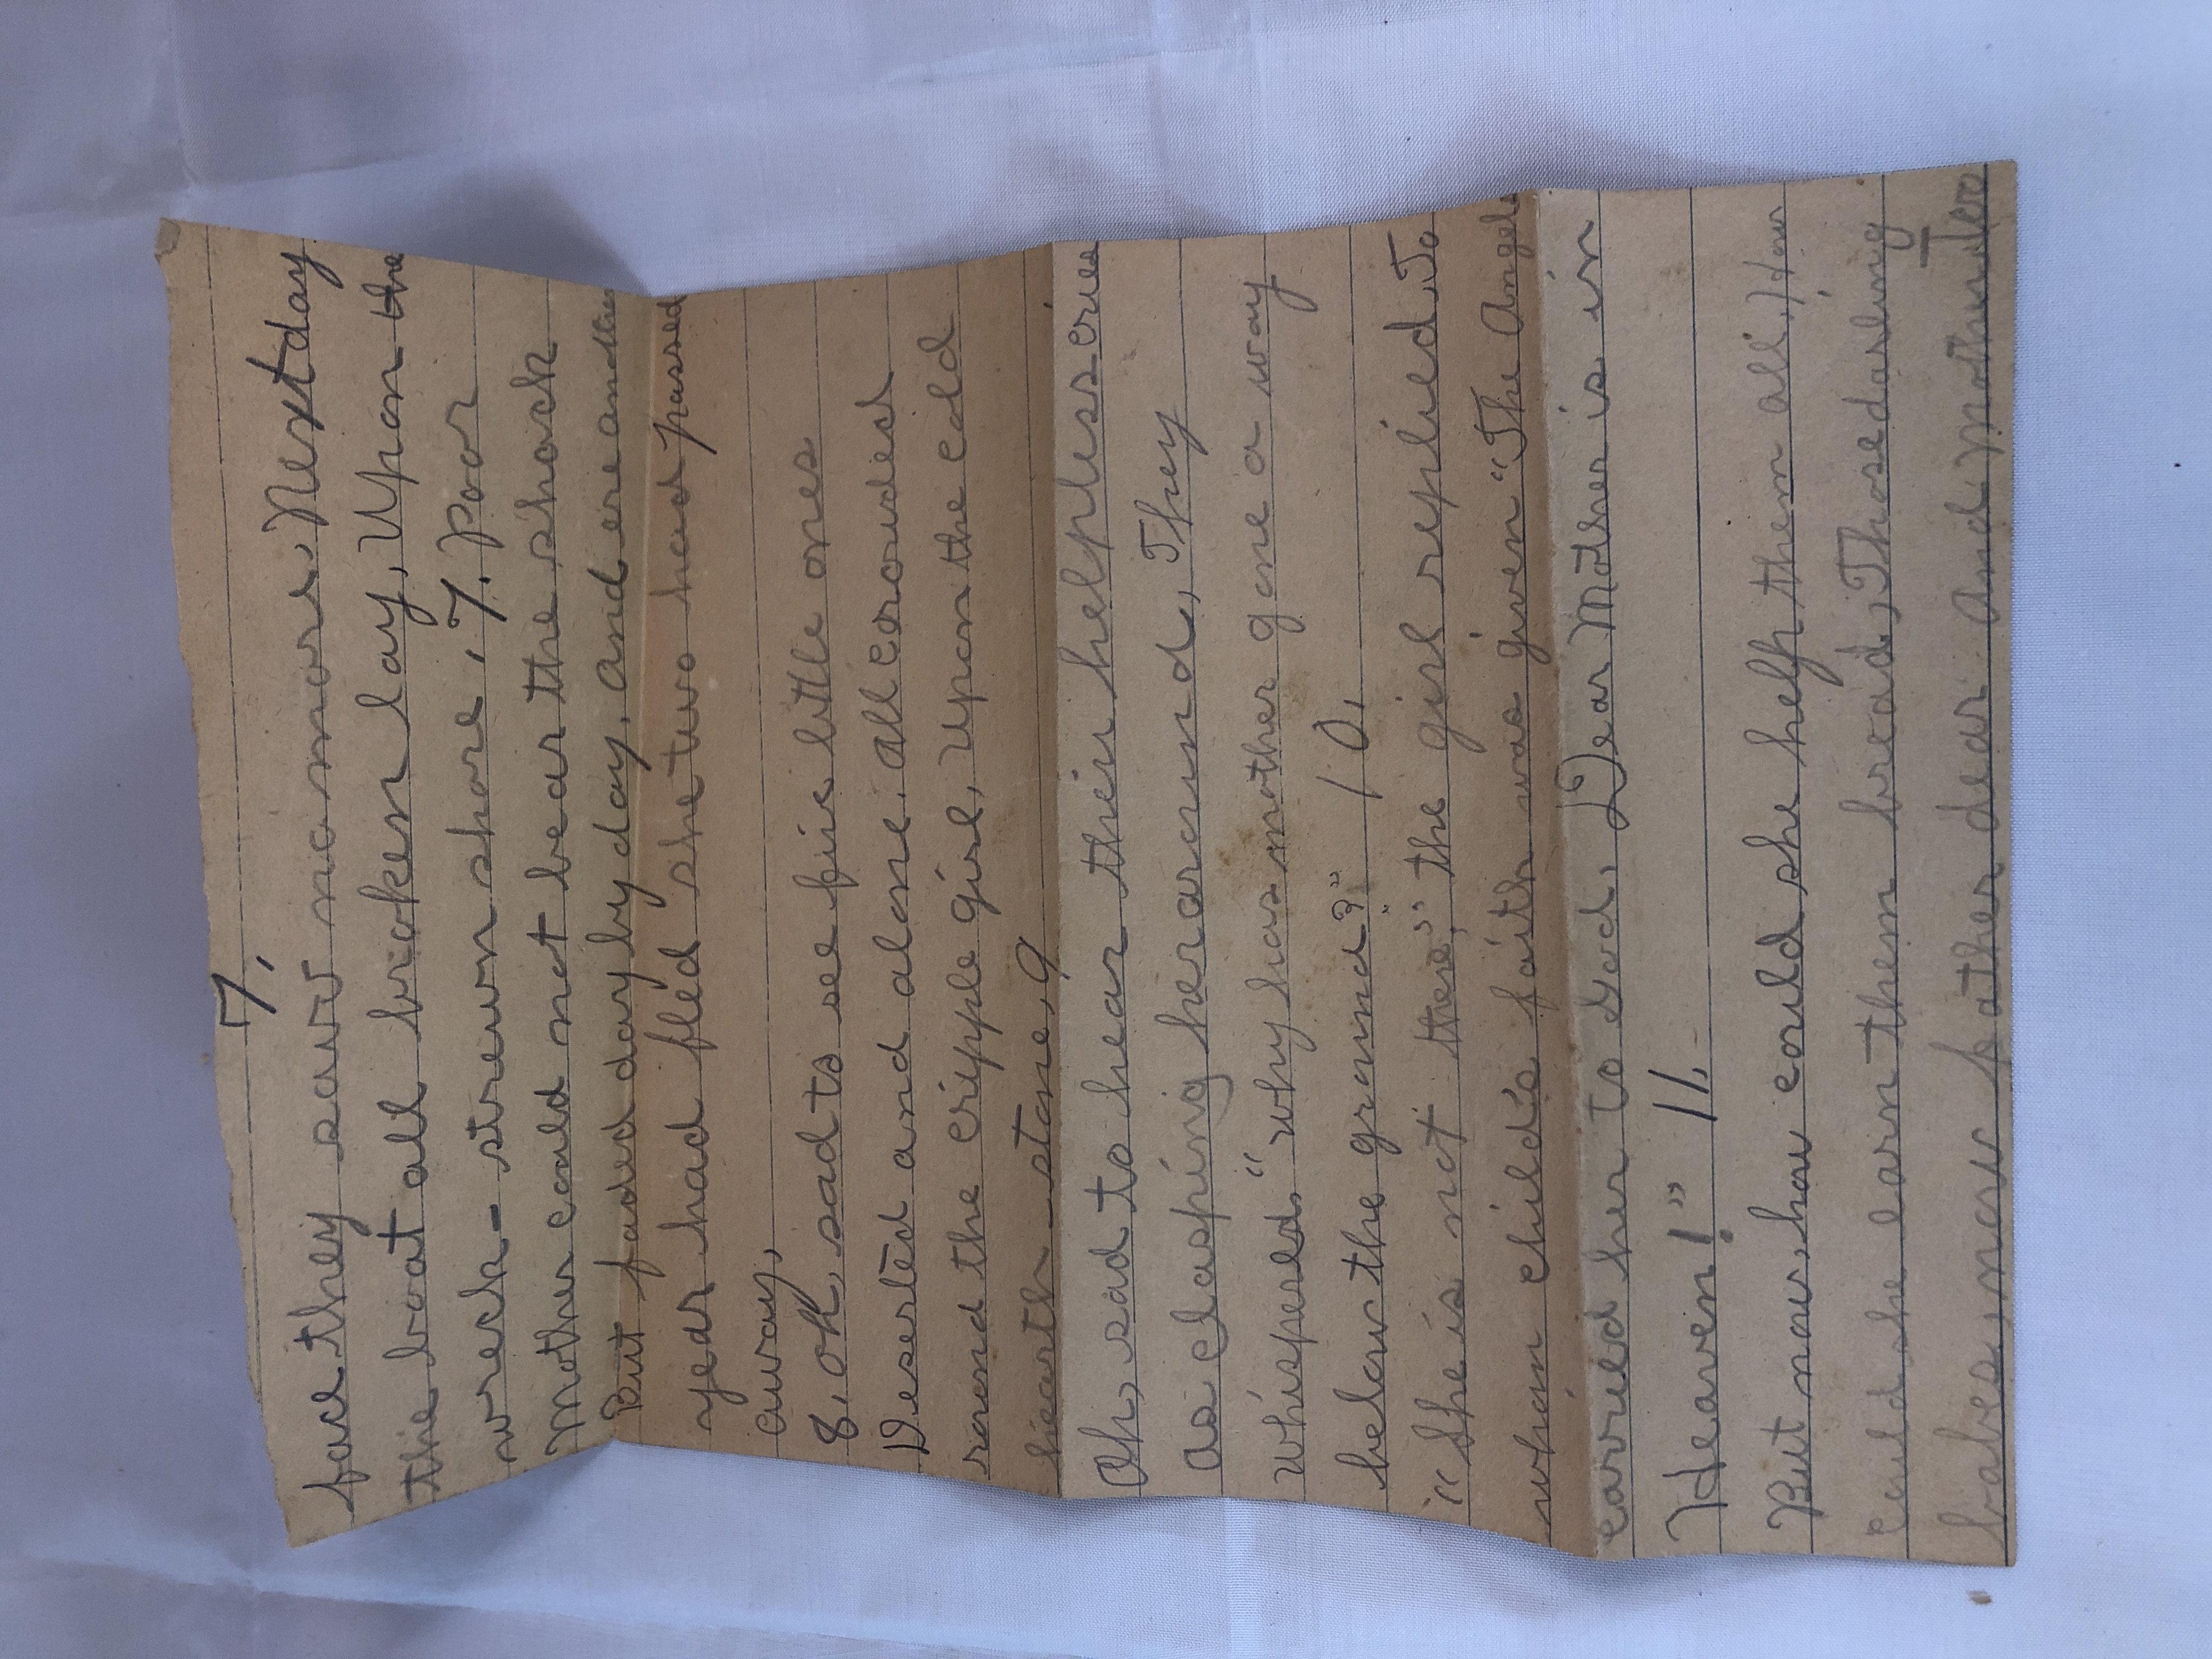 7,
face they saw no more, Next day
the boat all broken lay, Upon the
wreck - strewn shore, 7. Poor
Mother could not bear the shock
But faded day by day. And ere another
year had fled she two had passed
away,
8, Oh, sad to see five little ones
Deserted and alone. All crowded
round the cripple girl, Upon the cold
hearth - stone, 9
Oh, sad to hear their helpless cries
As clasping her around, They
whispered, "why has mother gone a way
below the ground?" 10,
"She is not there," the girl replied, To
whom child's faith was given "The Angels
carried her to God, Dear Mother is in
Heaven!" 11,
But now, how could she help them all, How
could she earn them bread, Those darling
babes, now father dear And Mother Too